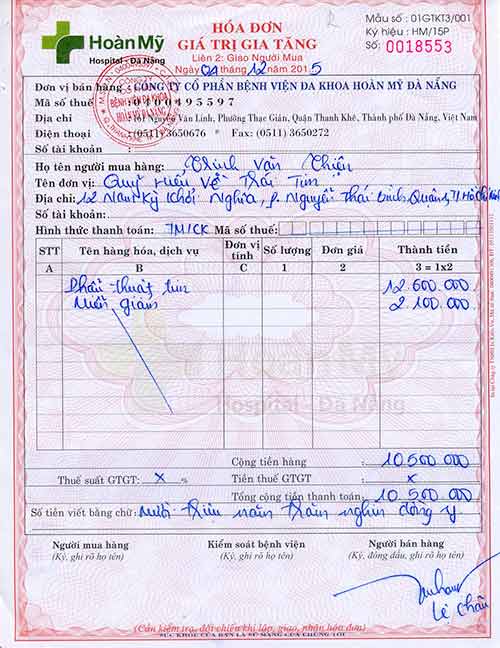 HoànMỹ
Hospital - Đà Nẵng
HÓA ĐƠN
GIÁ TRỊ GIA TĂNG
Liên 2: Giao Người Mua
Ngày 01 tháng 12 năm 2015
Mẫu số : 01GTKT3/001
Ký hiệu : HM/15P
Số: 0018553
Đơn vị bán hàng : CÔNG TY CỔ PHẦN BỆNH VIỆN ĐA KHOA HOÀN MỸ ĐÀ NẴNG
Mã số thuế : 0400495597
Địa chỉ : Nguyễn Văn Linh, Phường Thạc Gián, Quận Thanh Khê, Thành phố Đà Nẵng, Việt Nam
Điện thoại : (0511) 3650676 * Fax: (0511) 3650272
Số tài khoản :
BỆNH VIỆN ĐA KHOA
HOÀN MỸ ĐÀ NẴNG
Họ tên người mua hàng: Trịnh Văn Thiện
Tên đơn vị: Quỹ Hiểu Về Trái Tim
Địa chỉ: 12 Nam Kỳ Khởi Nghĩa, P. Nguyễn Thái Bình, Quận 1, TP. Hồ Chí Minh
Số tài khoản:
Hình thức thanh toán: TM/CK Mã số thuế:
STT Tên hàng hóa, dịch vụ Đơn vị tính Số lượng Đơn giá Thành tiền
A B C 1 2 3 = 1x2
Phẫu thuật tim 12.600.000
Miễn giảm 2.100.000
Hospital - Đà Nẵng
Cộng tiền hàng : 10.500.000
Thuế suất GTGT: x % Tiền thuế GTGT : x
Tổng cộng tiền thanh toán: 10.500.000
Số tiền viết bằng chữ: Mười triệu năm trăm nghìn đồng y.
Người mua hàng Kiểm soát bệnh viện Người bán hàng
(Ký, ghi rõ họ tên) (Ký, ghi rõ họ tên) (Ký, đóng dấu, ghi rõ họ tên)
Lê Châu
(Cần kiểm tra, đối chiếu khi lập, giao, nhận hóa đơn)
SỨC KHỎE CỦA BẠN LÀ SỨ MẠNG CỦA CHÚNG TÔI